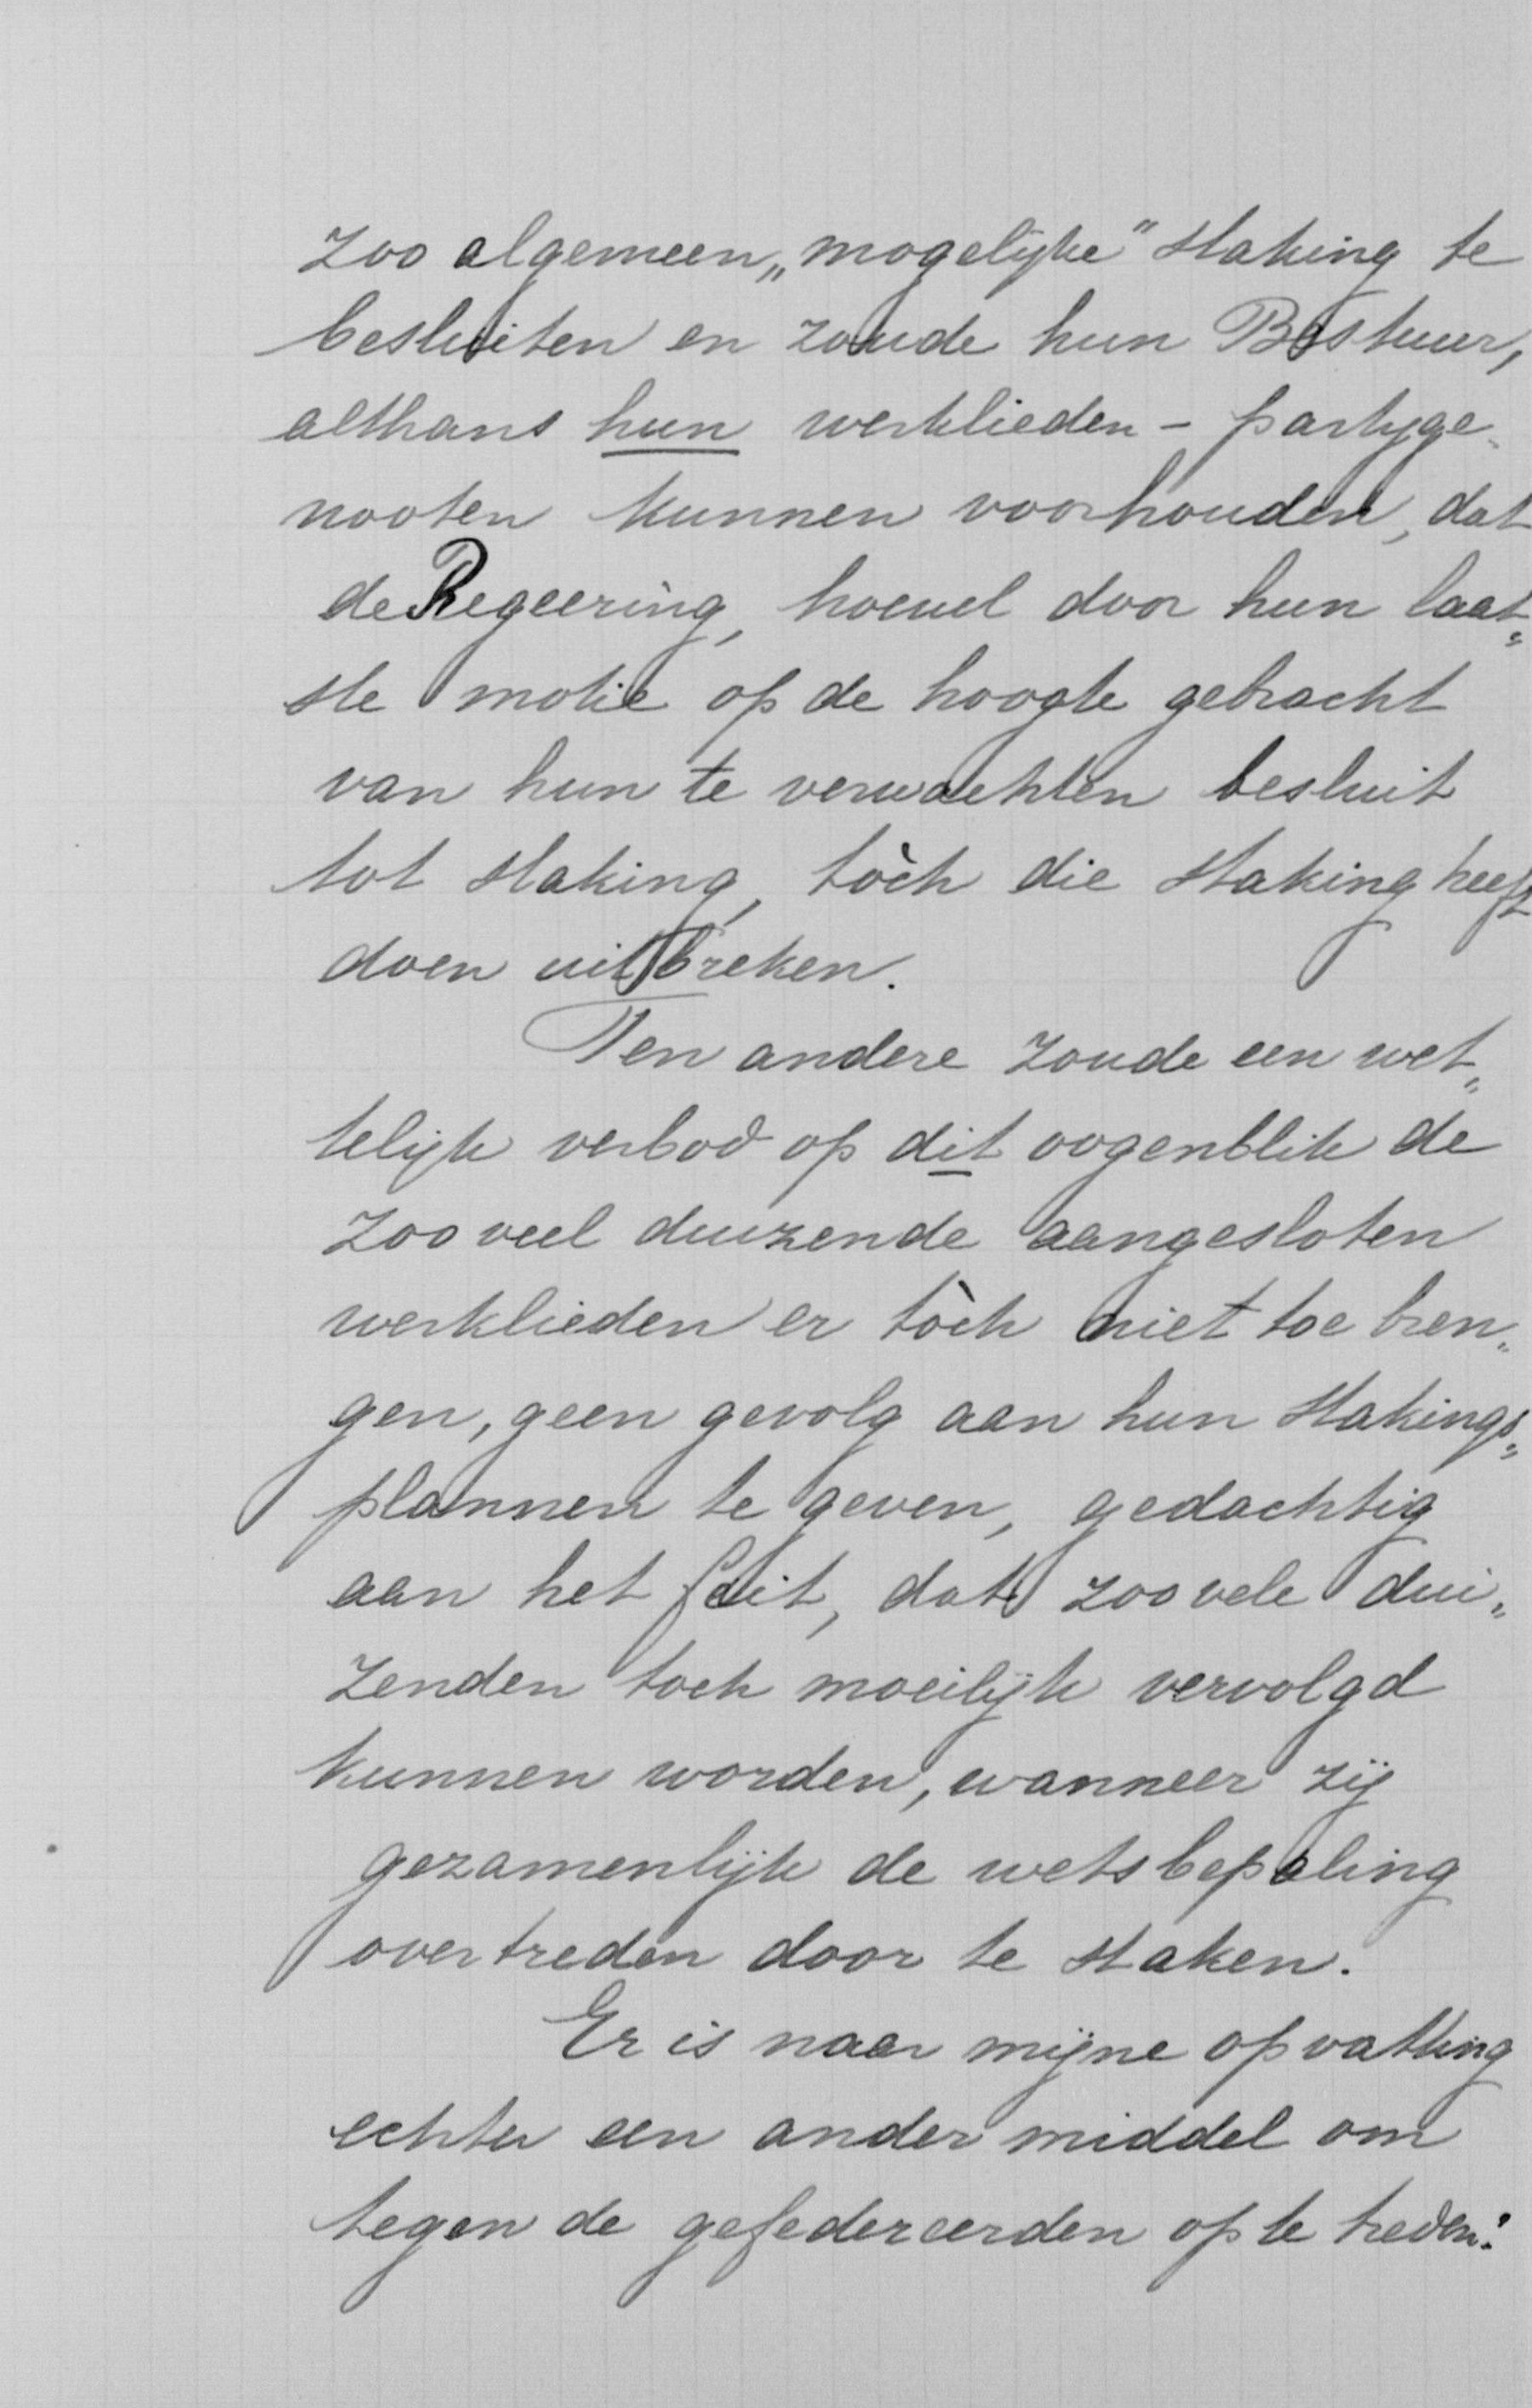 zoo algemeen „mogelijke” staking te
besluiten en zoude hun Bestuur,
althans hun werklieden - partijge„
nooten kunnen voorhouden, dat
de Regeering, hoewel door hun laat„
ste motie op de hoogte gebracht
van hun te verwachten besluit
tot staking, tòch die staking heeft
doen uitbreken.
Ten andere zoude een wet„
telijk verbod op dit oogenblik de
zooveel duizende aangesloten
werklieden er tòch niet toe bren„
gen, geen gevolg aan hun stakings„
plannen te geven, gedachtig
aan het feit, dat zoovele dui„
zenden toch moeilijk vervolgd
kunnen worden, wanneer zij
gezamenlijk de wetsbepaling
overtreden door te staken.
Er is naar mijne opvatting
echter een ander middel om
tegen de gefedereerden op te treden: